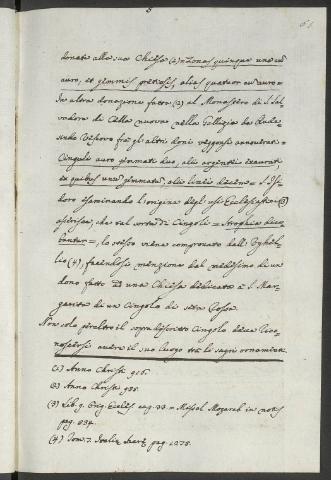 5
61
donate alla sua Chiesa (1) = Zonas quinque una cum
auro, et gemmis pretiosis, alias quatuor ex auro =
In altra donazione fatta (2) al Monastero di S. Sal-
vadore di Cella nuova nella Gallizia da Rude-
sindo Vescovo fra gli altri doni veggonsi annoverati =
Cinguli auro gemmati duo, alii argentei exaurati,
ex quibus unus gemmatus, alii linei decem = S. Isi-
doro esaminando l'origine degli usi Ecclesiastici (3)
asserisce, che tal sorta di Cingoli = Strophia dice-
bantur =, lo stesso viene comprovato dall' Ughel-
lio (4), facendosi menzione dal medesimo di un
dono fatto ad una Chiesa dedicata a S. Mar-
garita di un Cingolo di seta rossa.
Non solo peraltro il sopra descritto Cingolo deve rico-
noscersi avere il suo luogo tra le sagri ornamenta
(1) Anno Christi 916.
(2) Anno Christi 935.
(3) Lib. 9. Orig. Eccles. cap. 33 = Messal Mozarab. in notis
pag. 534.
(4) Tom. 7. Italiæ Sacræ pag. 1275.